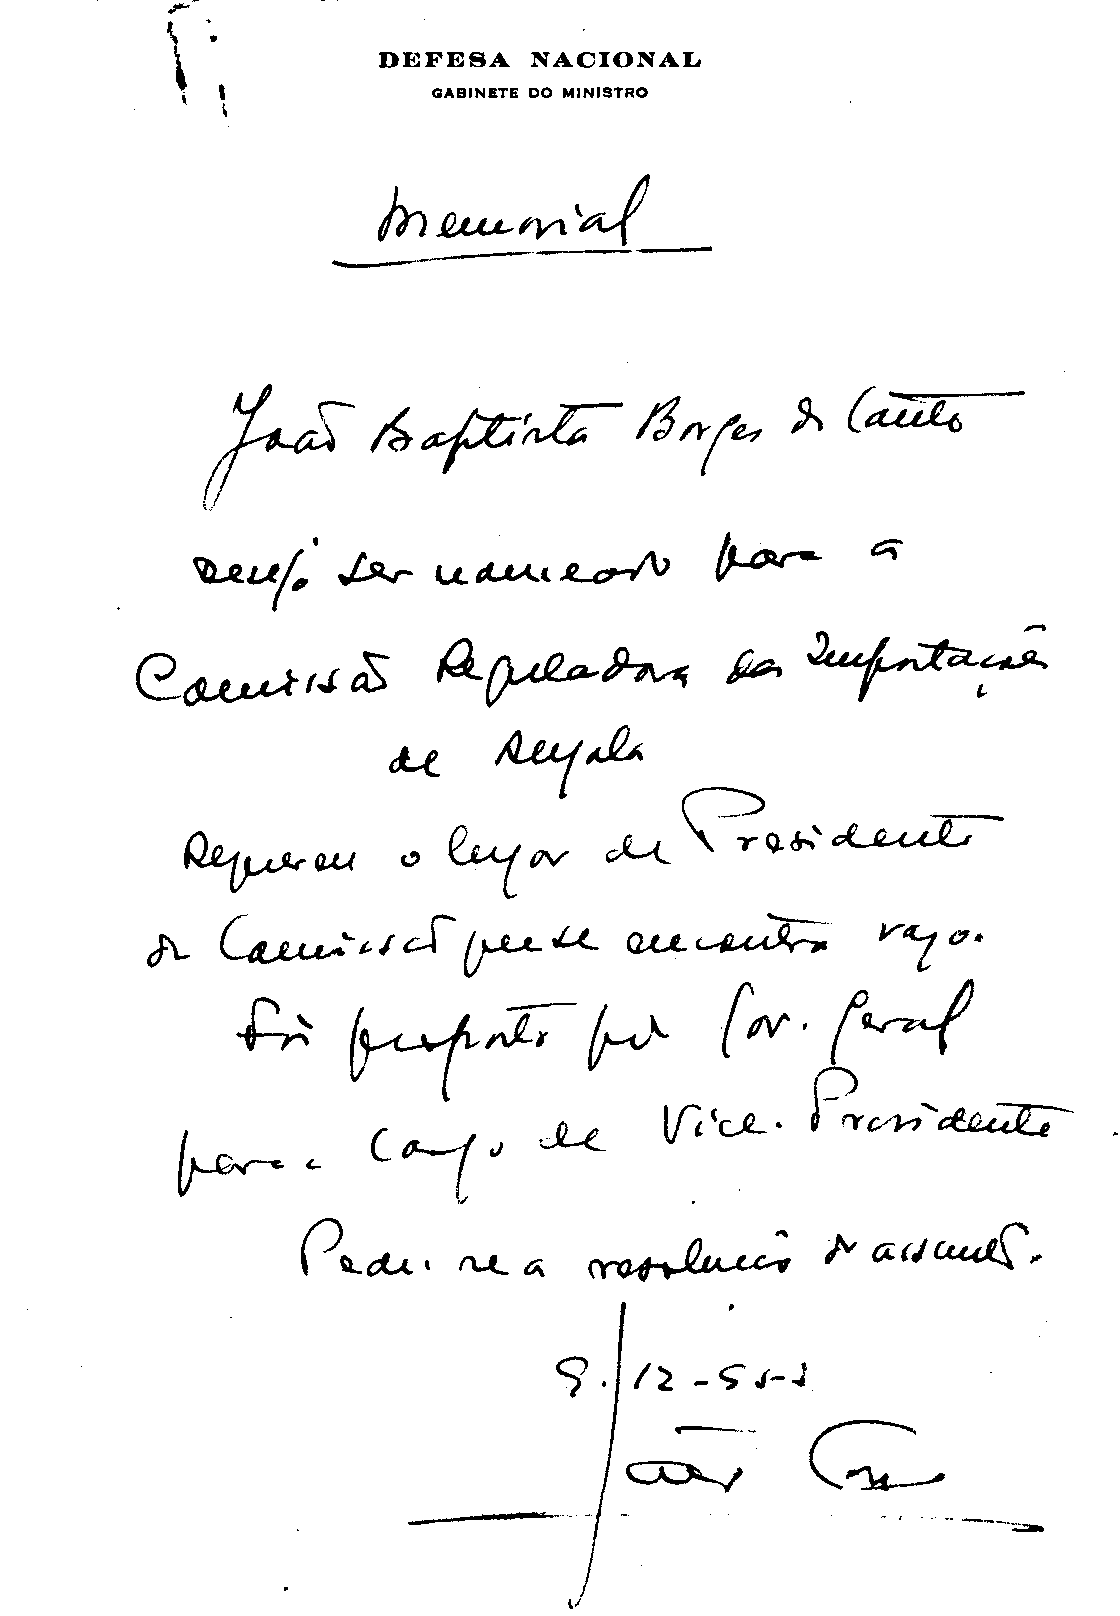 DEFESA NACIONAL
GABINETE DO MINISTRO
Memorial
João Baptista Borges do Canto
deseja ser nomeado para a
Comissão Reguladora das Importações
de Angola
Requereu o lugar de Presidente
da Comissão que se encontra vago.
Foi proposto pelo Gov. Geral
para o cargo de Vice-Presidente
Pede-se a resolução do assunto.
9/12-55